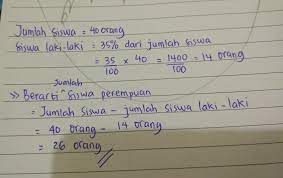 Jumlah siswa = 40 orang
Siswa laki-laki = 35% dari jumlah siswa
= 35/100 x 40 = 1400/100 = 14 orang
>> Berarti jumlah siswa perempuan
= Jumlah siswa - jumlah siswa laki-laki
= 40 orang - 14 orang
= 26 orang